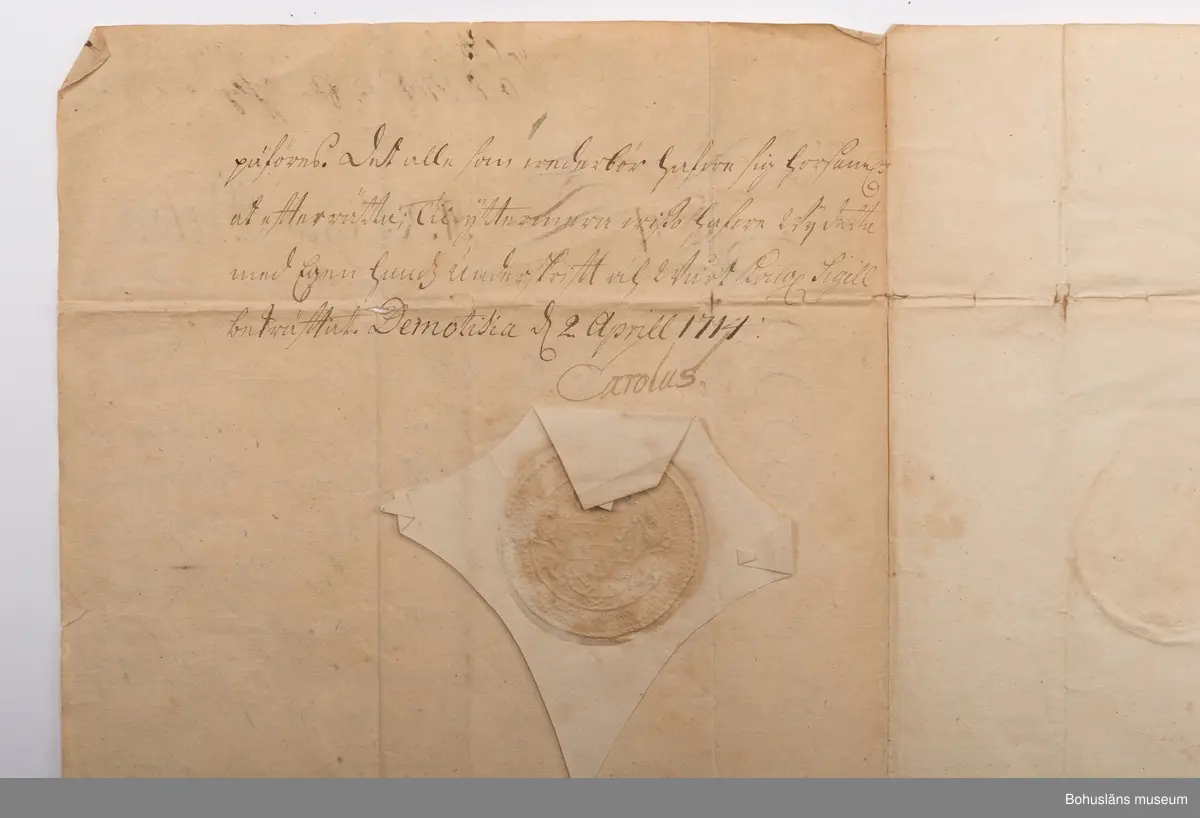 påföres. Det alle som wederbör hafwe sig hörsaml:n
at efterrätta; Til yttermera wiss hafwe Wÿ detta
med Egen hand Underskrift och Wårt Kongl Sigill
bekräfftat. Demotica d 2 Aprill 1714:
Carolus.
Bohusläns museum